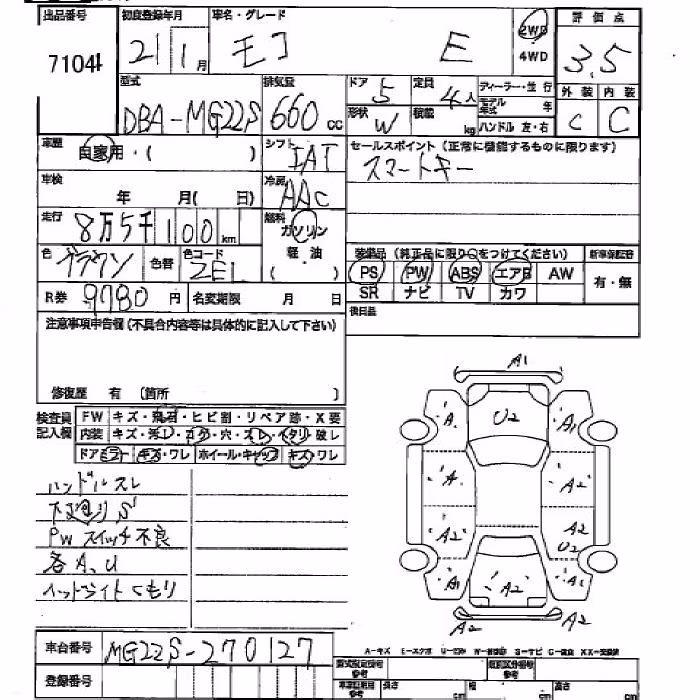 出品番号 初度登録年月 車名・グレード 2WD 評価点
7104 21 1月 モコ E 4WD 3.5
型式 排気量 ドア 定員 ディーラー・並行 外装 内装
DBA-MG22S 660cc 5 4人 モデル年式 年 C C
形状 W 積載 kg ハンドル 左・右
車歴 自家用・( ) シフト IAT セールスポイント(正常に機能するものに限ります)
スマートキー
車検 年 月( 日) 冷房 AAC
走行 8万5千100km 燃料 ガソリン
軽・油
( )
色 ブラウン 色替 色コード ZEL 装備品(純正品に限り○をつけてください) 新車保証書
PS PW ABS エアB AW 有・無
R券 9780円 名変期限 月 日 SR ナビ TV カワ
注意事項申告欄(不具合内容等は具体的に記入して下さい) 後日品
修復歴 有 〔箇所 〕
検査員 FW キズ・飛石・ヒビ割・リペア跡・X要
記入欄 内装 キズ・汚レ・コゲ・穴・スレ・ヘタリ・破レ
ドアミラー キズ・ワレ ホイール・キャップ キズ・ワレ
ハンドルスレ
下廻りS
PWスイッチ不良
各A、U
ヘッドライトくもり
A1
A U2 A1
A A2
A2 A2
U2
A1 A2 A1
A2 A2
車台番号 MG22S-270127
A-キズ E-エクボ
登録番号 型式指定番号 類別区分番号
長さ cm 幅 cm 高さ cm